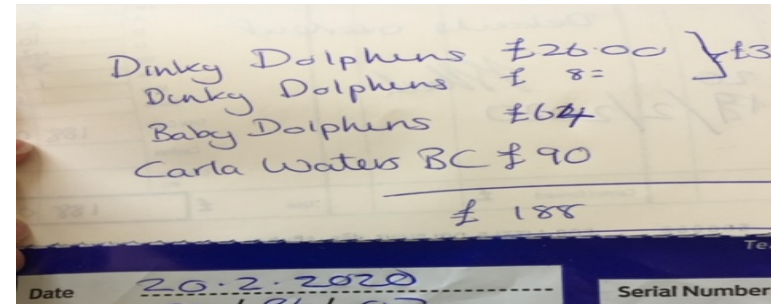 Dinky Dolphins £26.00 } £3
Dinky Dolphins £ 8=
Baby Dolphins £64
Carla Waters BC £90
£ 188
Te
Date 20.2.2020 Serial Number